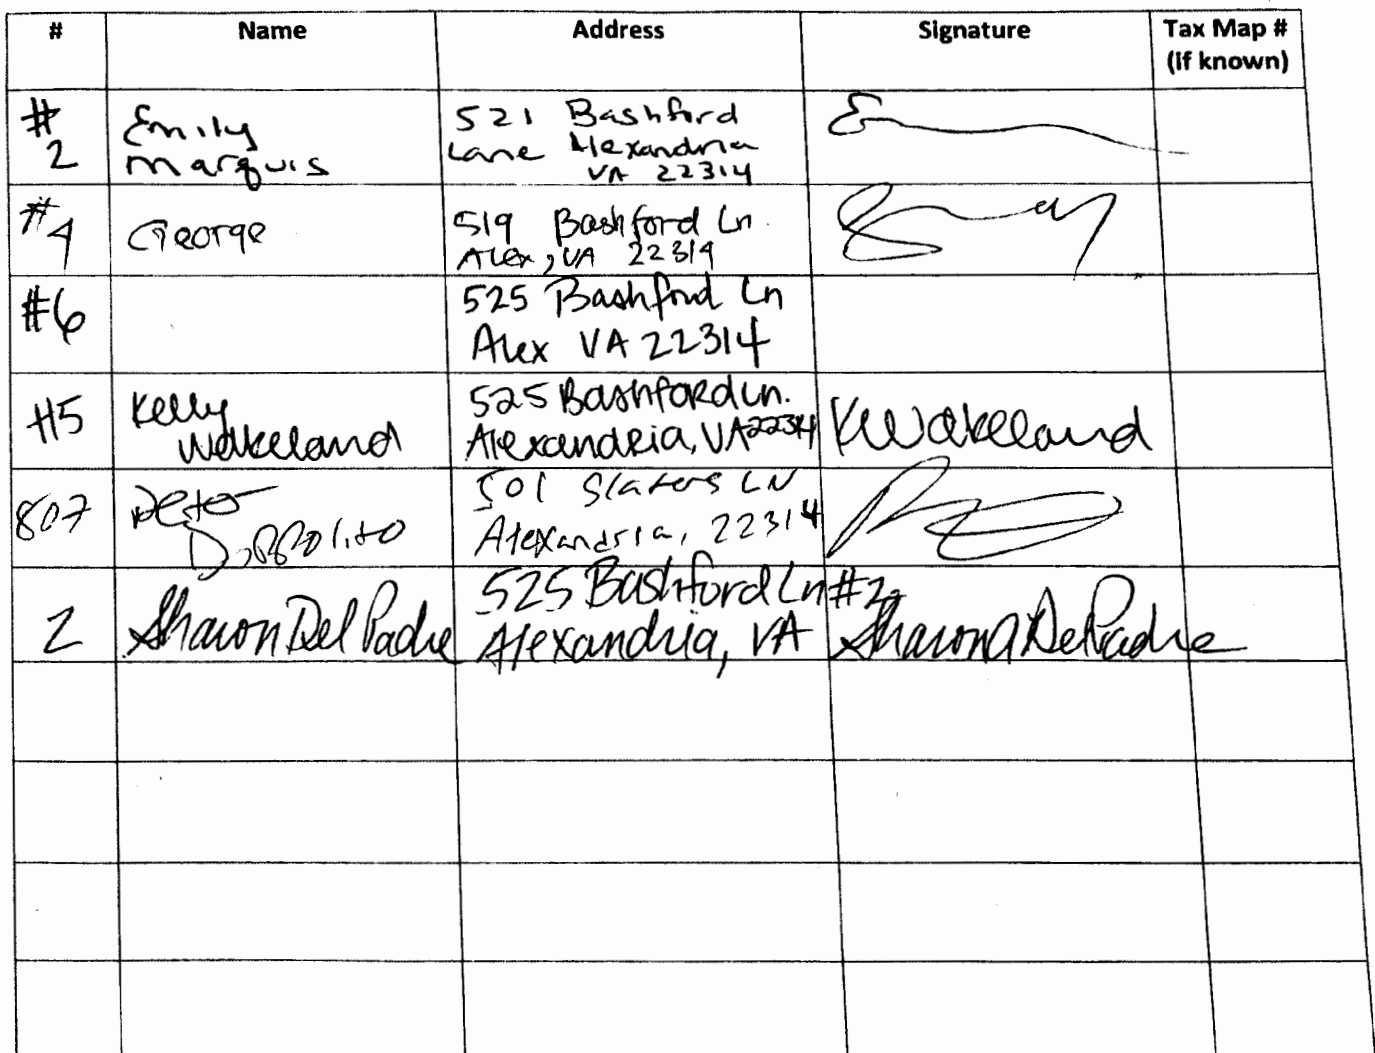 # Name Address Signature Tax Map #
(if known)
# 2 Emily Marquis 521 Bashford Lane Alexandria VA 22314
#4 George 519 Bashford Ln. Alex, VA 22314
#6 525 Bashford Ln Alex VA 22314
#5 Kelly Wakeland 525 Bashford Ln. Alexandria, VA 22314 KWakeland
807 Peter Dippolito 501 Slaters LN Alexandria, 22314
2 Sharon Del Padre 525 Bashford Ln #2 Alexandria, VA Sharon Del Padre